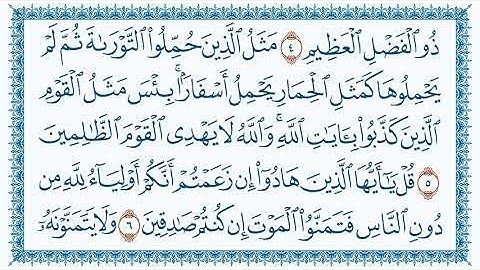 ذُو الْفَضْلِ الْعَظِيمِ ٤ مَثَلُ الَّذِينَ حُمِّلُوا التَّوْرَىٰةَ ثُمَّ لَمْ
يَحْمِلُوهَا كَمَثَلِ الْحِمَارِ يَحْمِلُ أَسْفَارًا ۚ بِئْسَ مَثَلُ الْقَوْمِ
الَّذِينَ كَذَّبُوا بِـَٔايَاتِ اللَّهِ ۚ وَاللَّهُ لَا يَهْدِى الْقَوْمَ الظَّٰلِمِينَ
٥ قُلْ يَٰٓأَيُّهَا الَّذِينَ هَادُوٓا إِن زَعَمْتُمْ أَنَّكُمْ أَوْلِيَآءُ لِلَّهِ مِن
دُونِ النَّاسِ فَتَمَنَّوُا الْمَوْتَ إِن كُنتُمْ صَٰدِقِينَ ٦ وَلَا يَتَمَنَّوْنَهُۥٓ